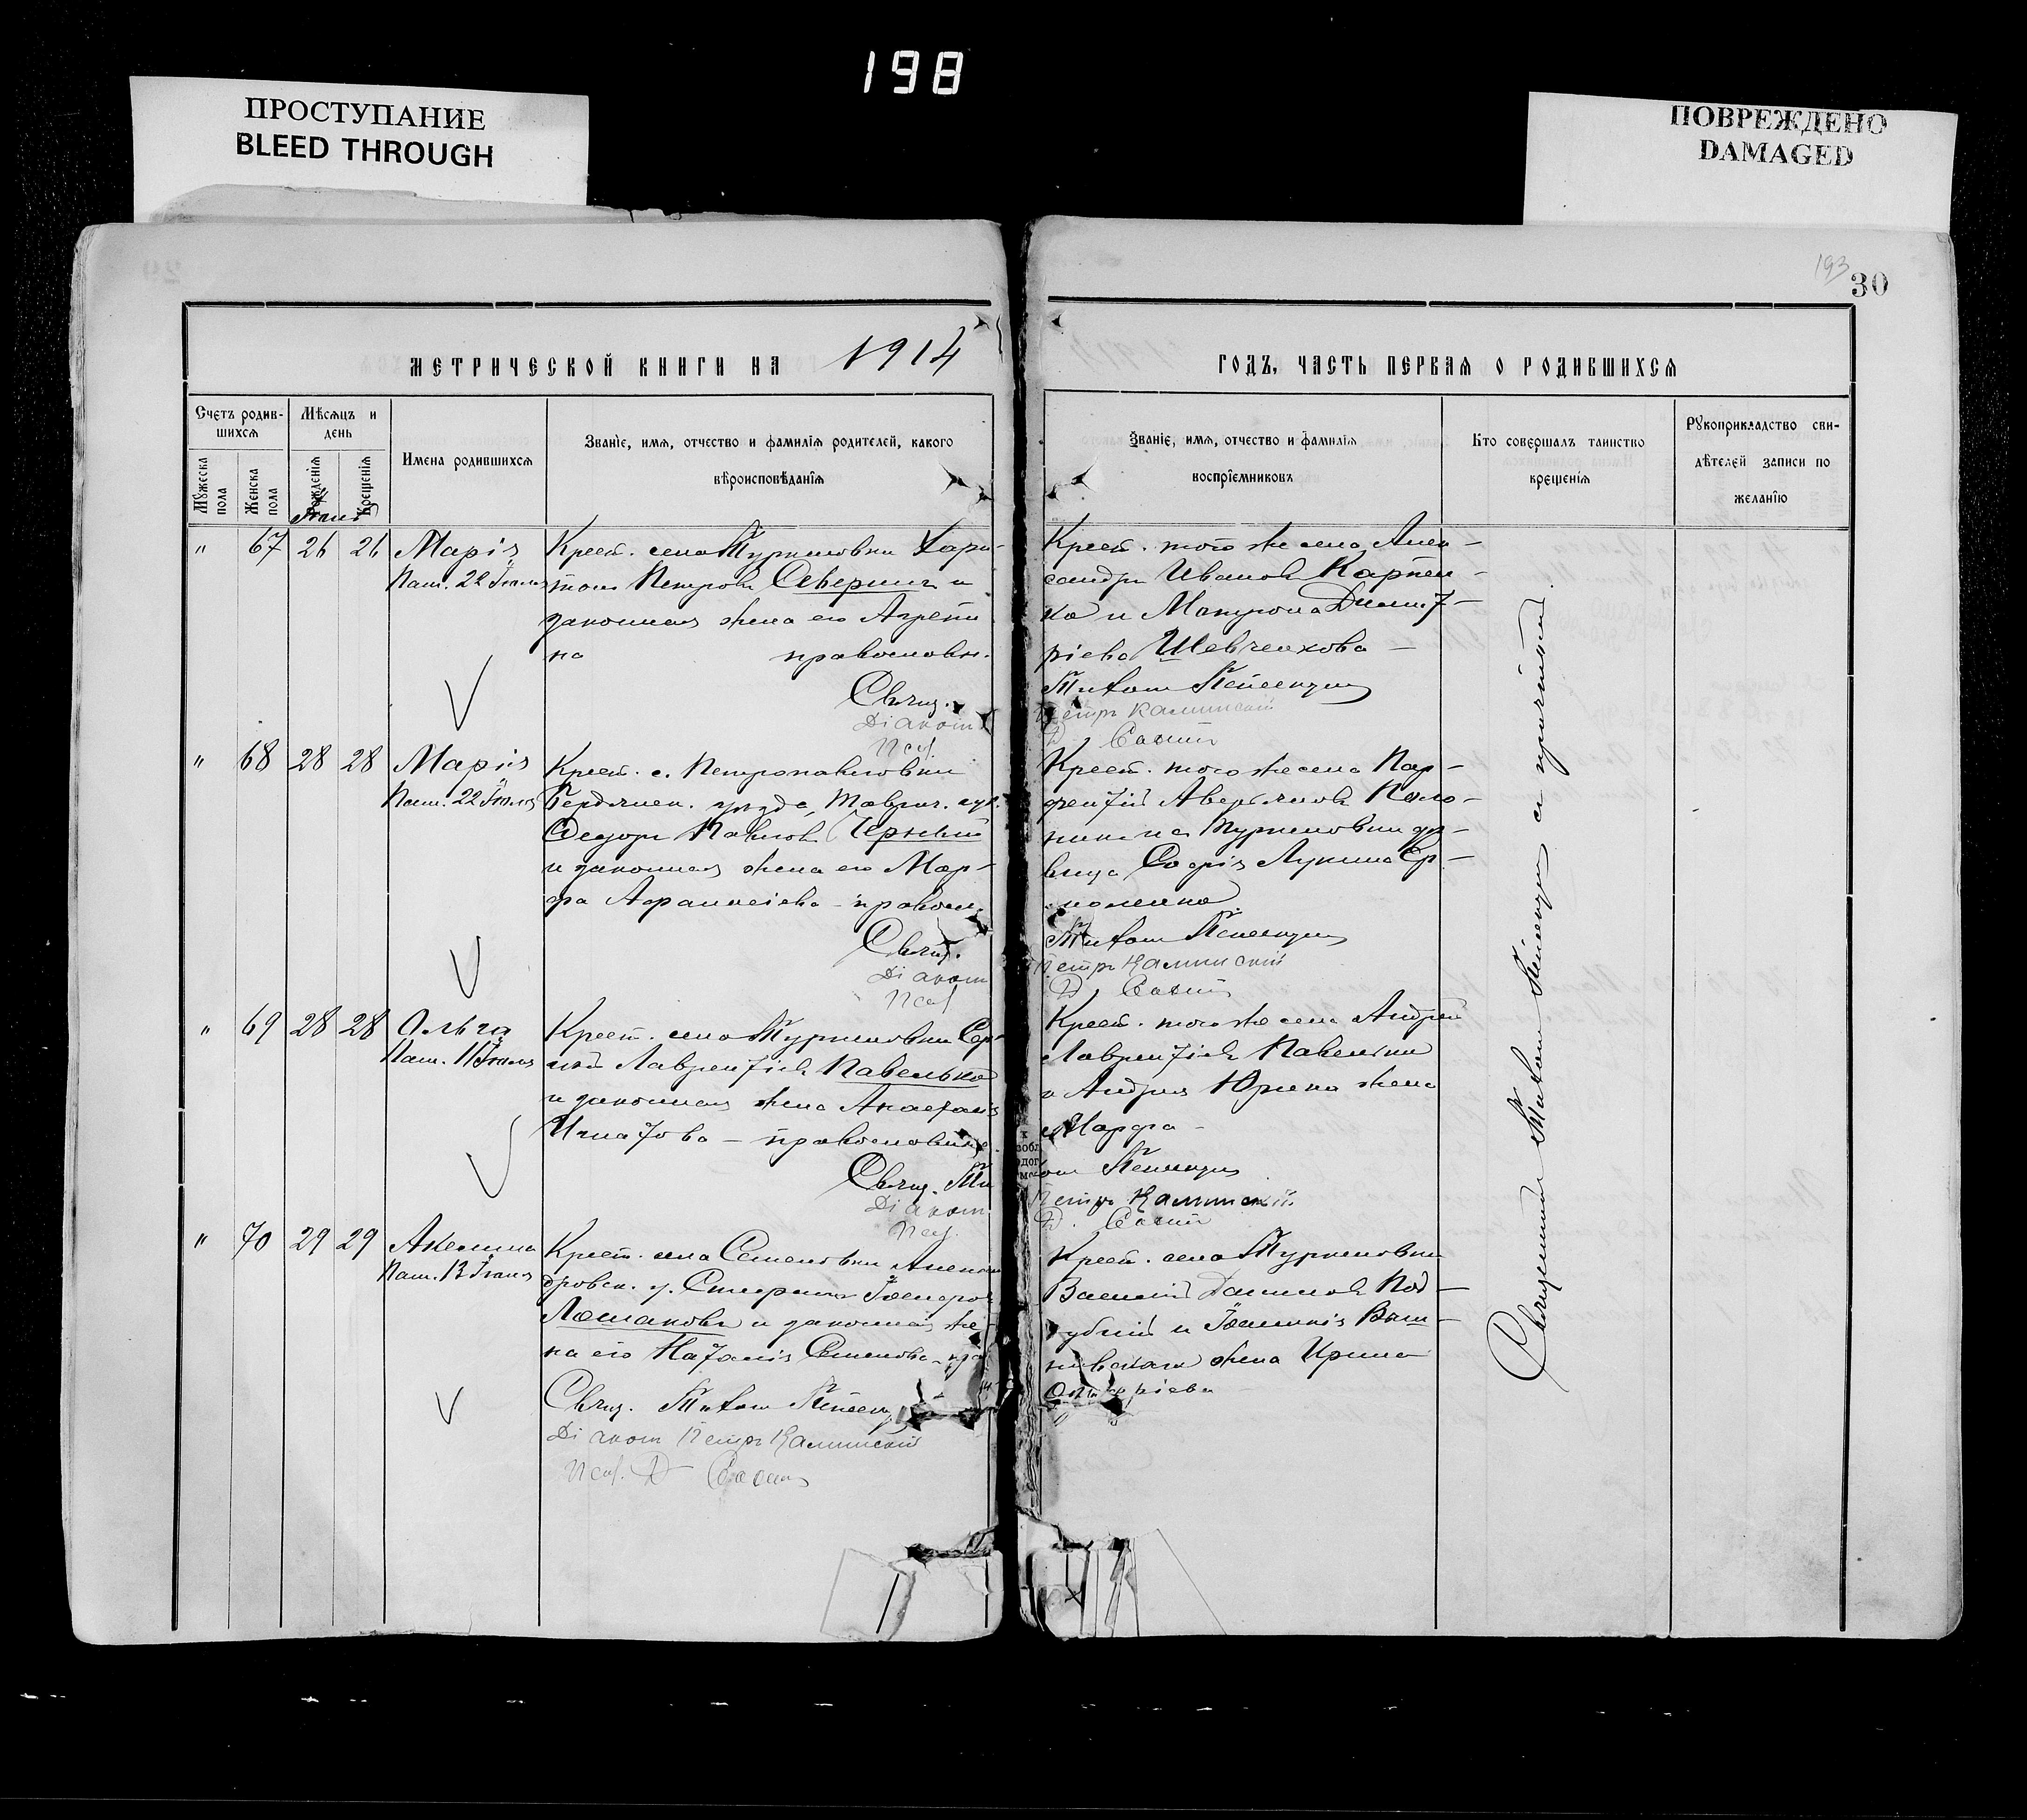 198
ПРОСТУПАНИЕ
BLEED THROUGH
ПОВРЕЖДЕНО
DAMAGED
193
30
МЕТРИЧЕСКОЙ КНИГИ НА 1914
ГОДЪ, ЧАСТЬ ПЕРВАЯ О РОДИВШИХСЯ
Счетъ родив-
шихся
Мужеска пола
Женска пола
Мѣсяцъ и
день
Рожденія
Крещенія
Имена родившихся
Званіе, имя, отчество и фамилія родителей, какого
вѣроисповѣданія
Званіе, имя, отчество и фамилія
воспріемниковъ
Кто совершалъ таинство
крещенія
Рукоприкладство сви-
дѣтелей записи по
желанію
" 67 26 26 Марія
Пам. 22 Іюля
Крест. села Туркеновки Хари-
тонъ Петровъ Северинъ и
законная жена его Агрепи
на православн.
Свящ.
Діаконъ
Псал.
Крест. того же села Алек-
сандръ Ивановъ Карпен-
ко и Матрона Димит-
ріева Шевченкова
Тихонъ
Петръ Калинскій
Д.
" 68 28 28 Марія
Пам. 22 Іюля
Крест. с. Петропавловки
Бердянск. уѣзда, Таврич. губ.
Ѳеодоръ Павловъ
и законная жена его Мар-
фа Афанасіева - правосл.
Свящ.
Діаконъ
Псал.
Крест. того же села Пар-
фентій
на Туркеновки дѣ-
вица Софія Лукина Ер-
моленко
Тихонъ
Петръ Калинскій
Д.
" 69 28 28 Ольга
Пам. 11 Іюля
Крест. села Туркеновки Сер-
гій Лаврентіевъ Павелько
и законная жена Анастасія
Игнатова - православные
Свящ. Ти
Діаконъ
Псал.
Крест. того же села Андрей
Лаврентіевъ Павелько
и Андрея Юрика жена
Марфа -
Петръ Калинскій
Д.
" 70 29 29 Акелина
Пам. 13 Іюля
Крест. села Семеновки Алексан
дровск. у. Стефанъ
и законная же-
на его Наталія Семенова
Свящ. Тихонъ
Діаконъ Петръ Калинскій
Псал. Д
Крест. села Туркеновки
Василій Даниловъ Под-
дубный и
жена Ирина
Священникъ Тихонъ съ причтомъ.